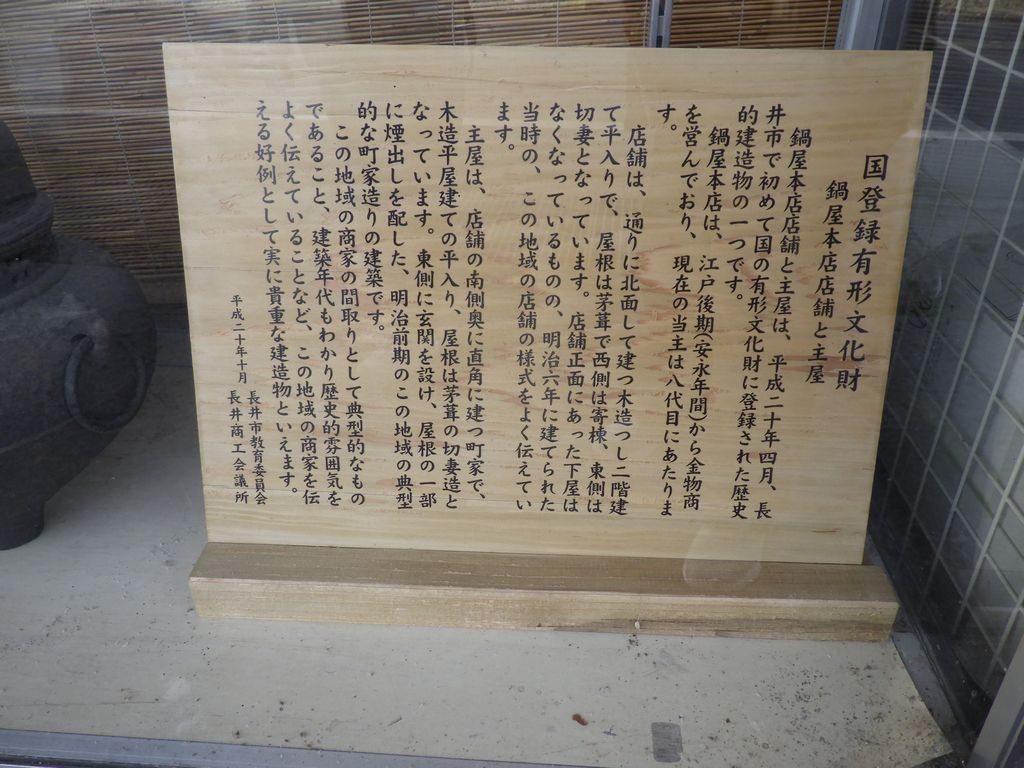 国登録有形文化財
鍋屋本店店舗と主屋
鍋屋本店店舗と主屋は、平成二十年四月、長
井市で初めて国の有形文化財に登録された歴史
的建造物の一つです。
鍋屋本店は、江戸後期(安永年間)から金物商
を営んでおり、現在の当主は八代目にあたりま
す。
店舗は、通りに北面して建つ木造つし二階建
て平入りで、屋根は茅葺で西側は寄棟、東側は
切妻となっています。店舗正面にあった下屋は
なくなっているものの、明治六年に建てられた
当時の、この地域の店舗の様式をよく伝えてい
ます。
主屋は、店舗の南側奥に直角に建つ町家で、
木造平屋建ての平入り、屋根は茅葺の切妻造と
なっています。東側に玄関を設け、屋根の一部
に煙出しを配した、明治前期のこの地域の典型
的な町家造りの建築です。
この地域の商家の間取りとして典型的なもの
であること、建築年代もわかり歴史的雰囲気を
よく伝えていることなど、この地域の商家を伝
える好例として実に貴重な建造物といえます。
平成二十年十月 長井市教育委員会
長井商工会議所